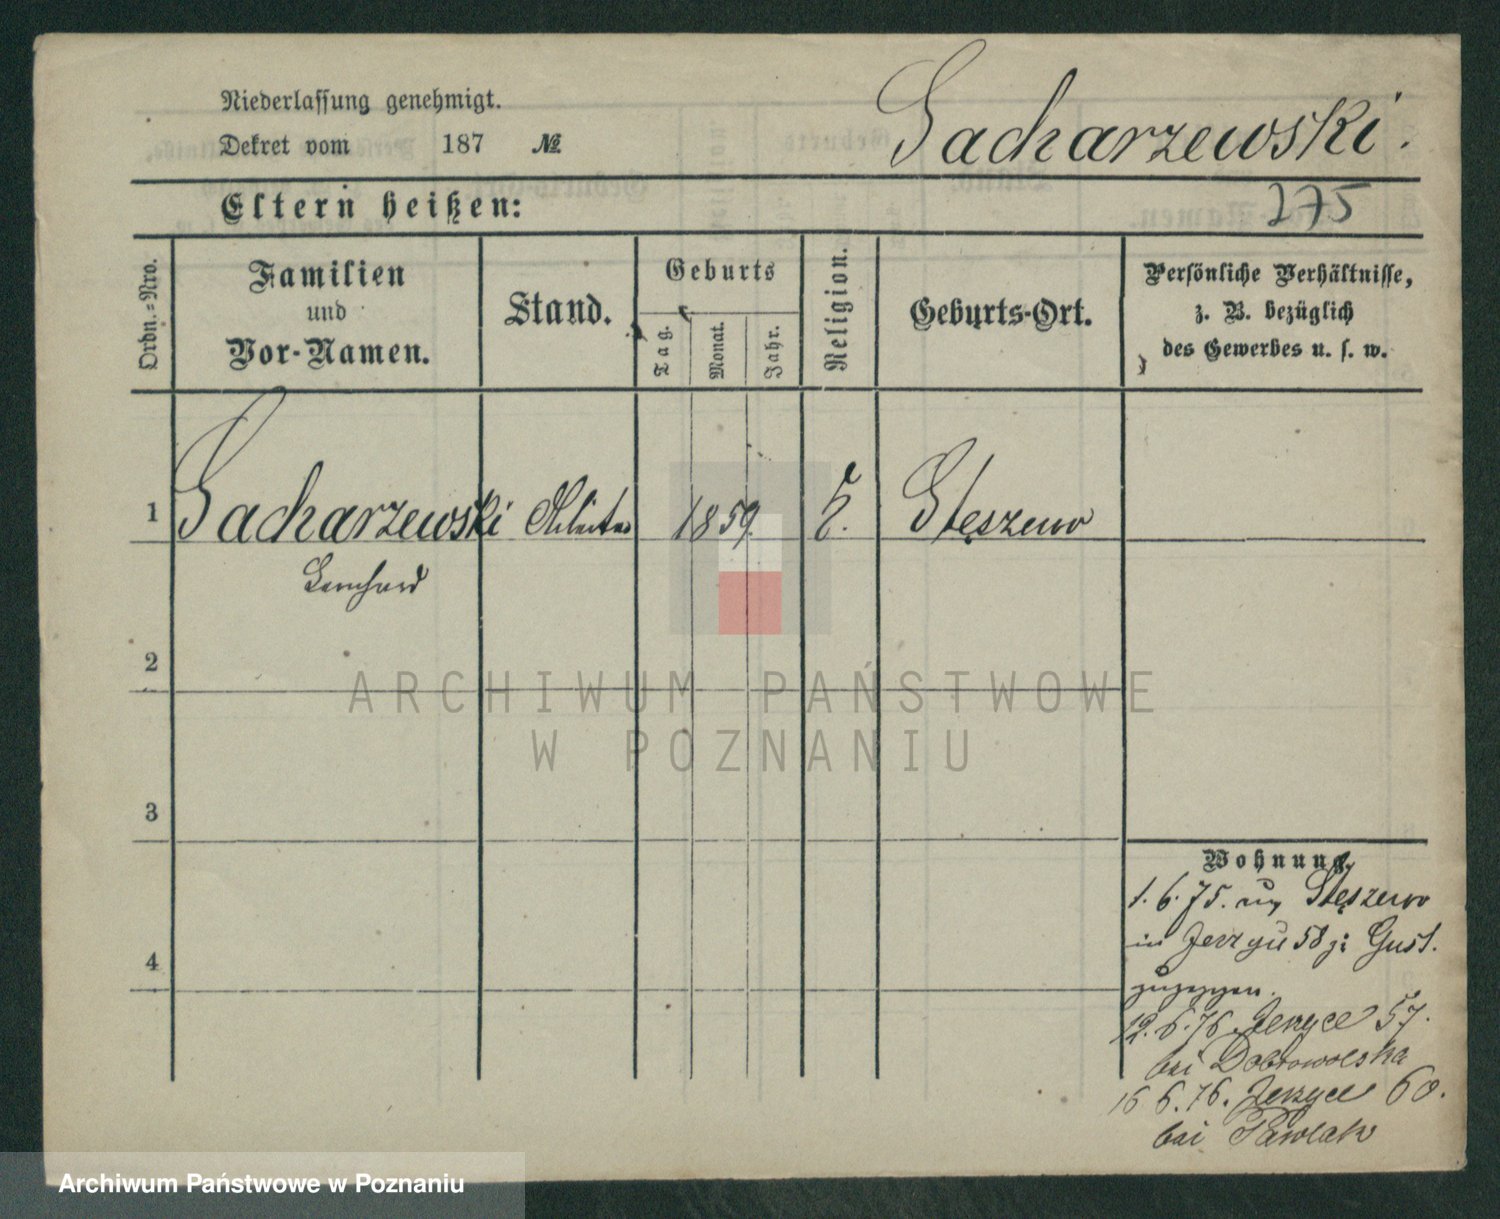 Niederlassung genehmigt.
Dekret vom 187 №
Sacharzewski.
275
Eltern heißen:
Ordn.-Nro.
Familien
und
Vor-Namen.
Stand.
Geburts
Tag.
Monat.
Jahr.
Religion.
Geburts-Ort.
Persönliche Verhältnisse,
z. B. bezüglich
des Gewerbes u. s. w.
1 Sacharzewski 1859. Stęszewo
2
3
4
Wohnung.
1. 6. 75. Stęszewo
in Jerzyce 58
12. 6. 76. Jerzyce 57.
bei Dobrowolska
16 6. 76. Jerzyce 60.
bei Pawlak
ARCHIWUM PAŃSTWOWE
W POZNANIU
Archiwum Państwowe w Poznaniu